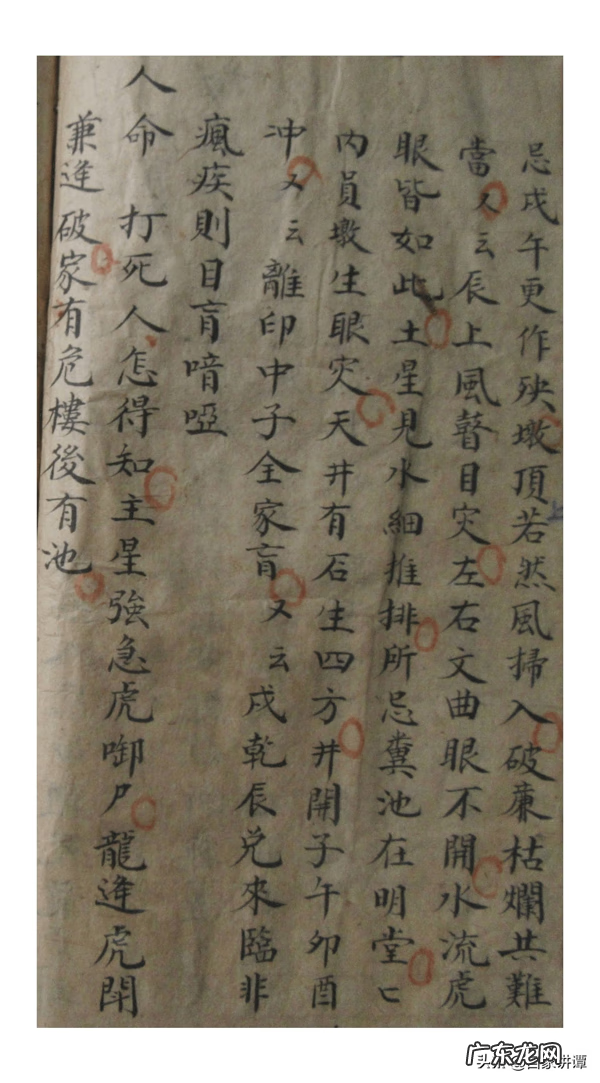 忌戌午更作殃墩頂若然風掃入破廉枯爛共難
當又云辰上風聲目灾左右文曲眼不開水流虎
眼皆如此土星見水細推排所忌糞池在明堂亡
内員墩生眼灾天井有石生四方井開子午卯酉
冲又云離印中子全家盲又云戌乾辰兌來臨非
瘋疾則目盲喑啞
人命 打死人怎得知主星強急虎啣尸龍逢虎鬥
兼逢破家有危樓後有池
上
广东龙网